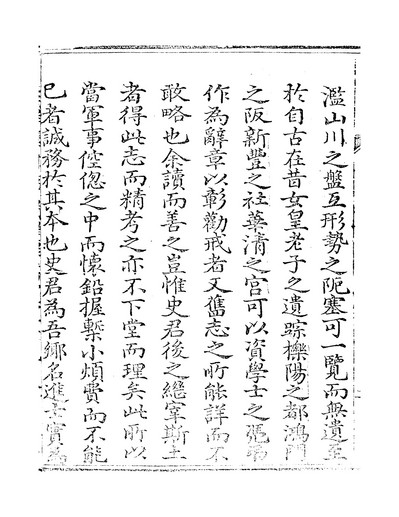 濫山川之盤互形勢之阨塞可一覽而無遺至
於自古在昔女皇老子之遺踪櫟陽之都鴻門
之阪新豐之社華清之宮可以資學士之
作為辭章以彰勸戒者又舊志之所能詳而不
敢略也余讀而善之豈惟史君後之繼宰斯土
者得此志而精考之亦不下堂而理矣此所以
當軍事倥傯之中而懷鉛握槧小煩費而不能
已者誠務於其本也史君為吾鄉名進士實為